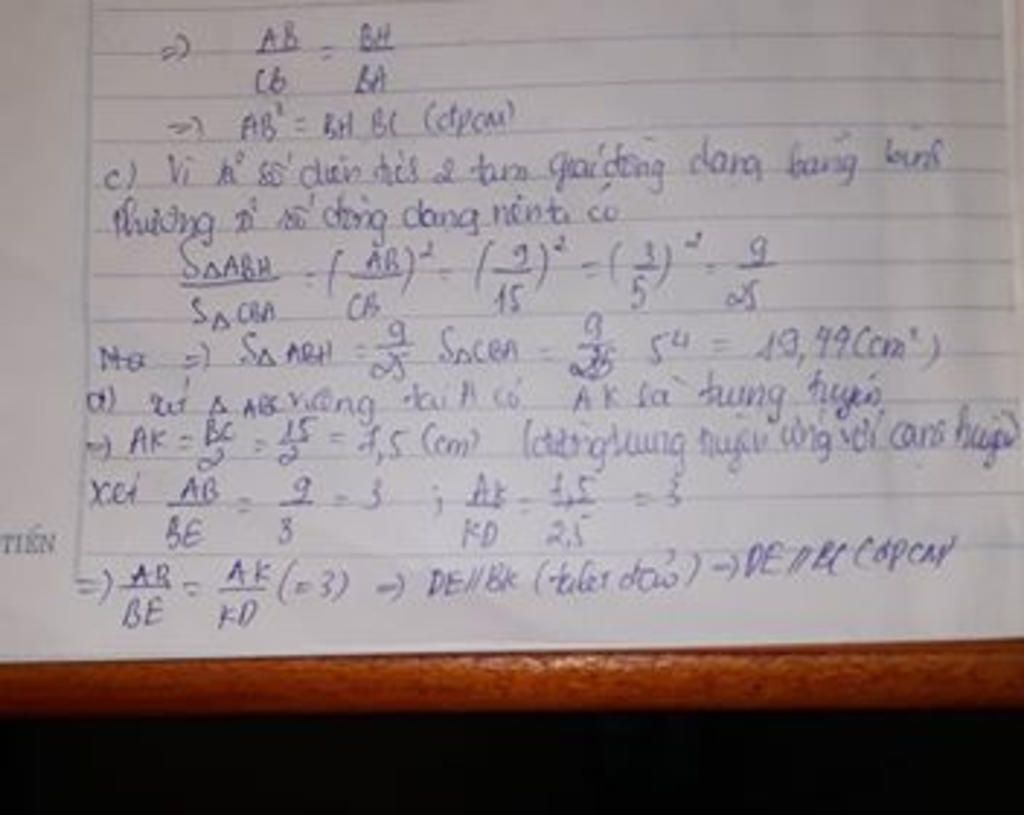 => AB/CB = BH/BA
=> AB² = BH BC (đpcm)
c) Vì tỉ số diện tích 2 tam giác đồng dạng bằng bình
phương tỉ số đồng dạng nên ta có
S△ABH/S△CBA = (AB/CB)² = (9/15)² = (3/5)² = 9/25
=> S△ABH = 9/25 S△CBA = 9/25 54 = 19,44 (cm²)
d) xét △ABC vuông tại A có AK là trung tuyến
=> AK = BC/2 = 15/2 = 7,5 (cm) (đường trung tuyến ứng với cạnh huyền)
xét AB/BE = 9/3 = 3 ; AK/KD = 7,5/2,5 = 3
TIẾN
=> AB/BE = AK/KD (= 3) => DE // BK (talet đảo) => DE // BC (đpcm)